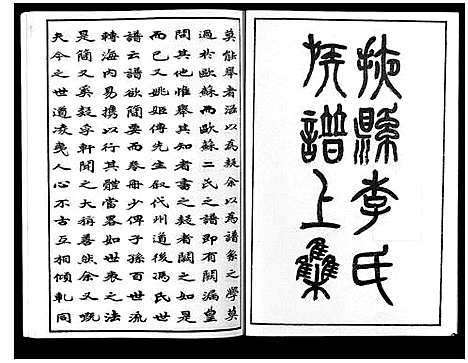 掖縣李氏
族譜上集
莫能舉者治以為疑余以為譜系之學莫
過於歐蘇而歐蘇二氏之譜即有闕漏皇
問其他惟舉其知者書之疑者闕之如是
而已又姚姬傳先生叙代州道後馮氏世
譜云譜欲簡而卷冊少俾子孫百世流
轉海內易攜以行其體當畧如世表之法
是簡又奚疑孚軒聞之大稱善然余又嘅
夫今之世道凌夷人心不古互相傾軋同